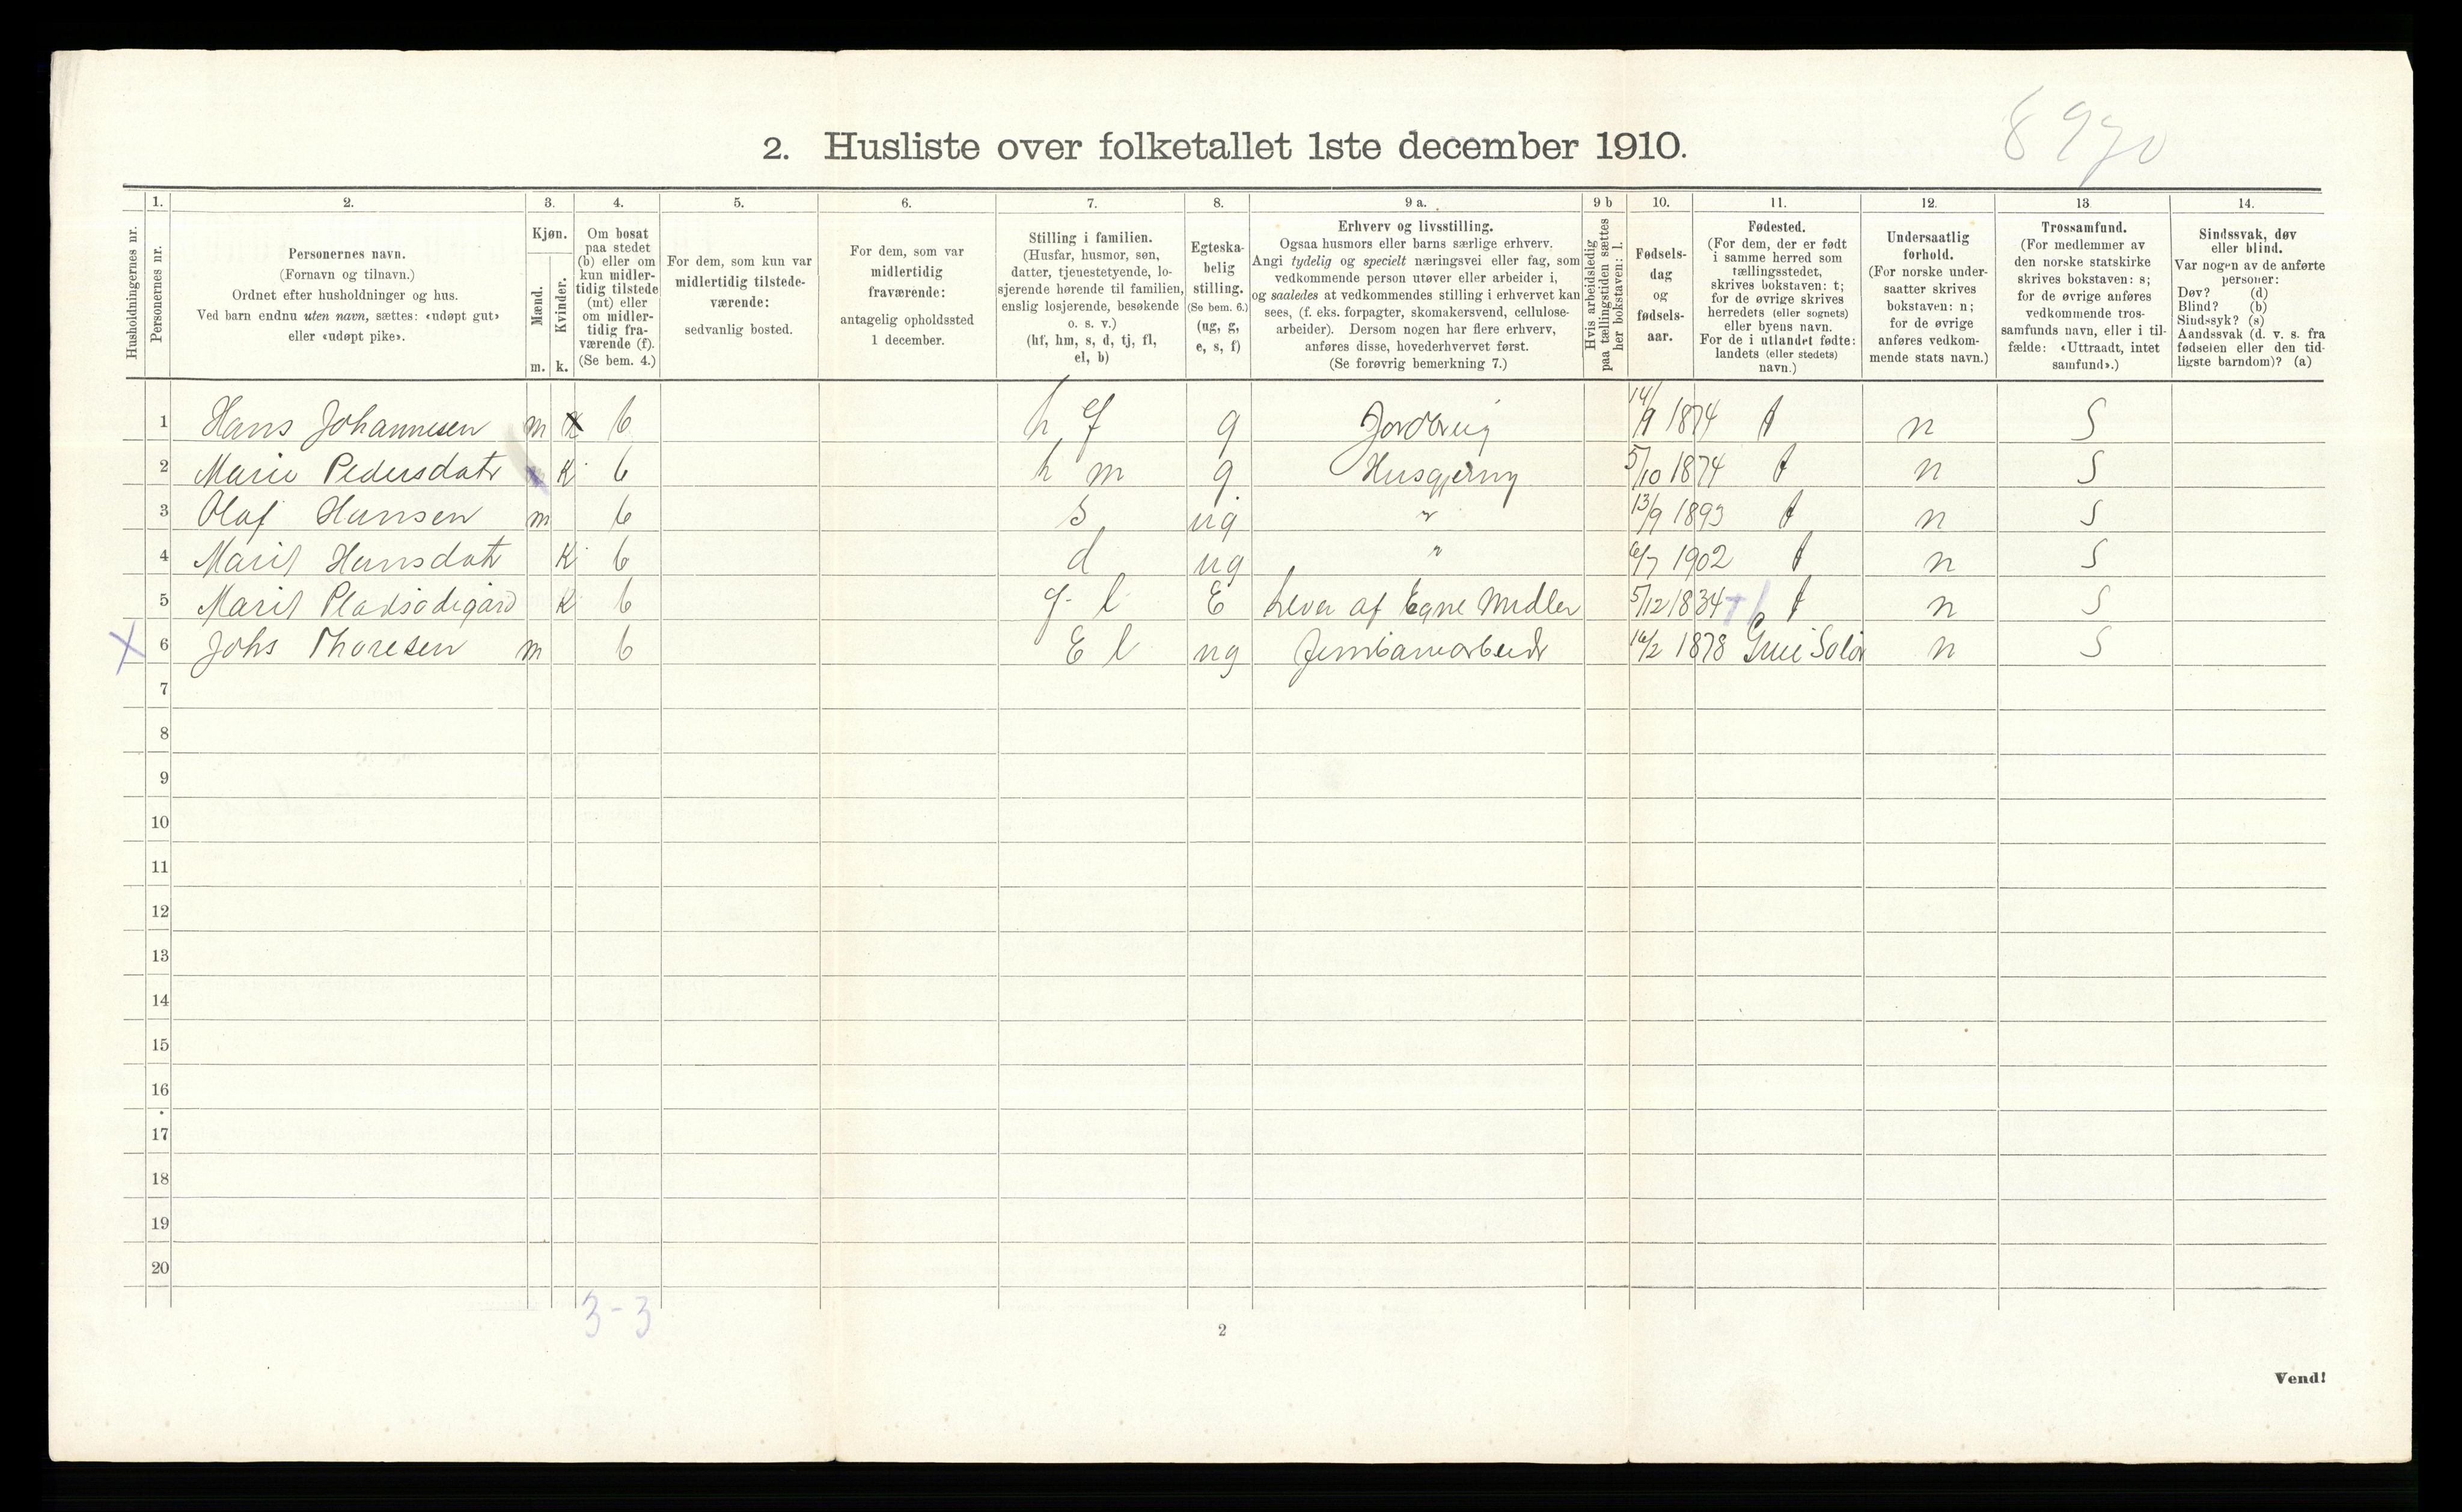 8970
2. Husliste over folketallet 1ste december 1910.
1. 2. 3. 4. 5. 6. 7. 8. 9 a. 9 b 10. 11. 12. 13. 14.
Husholdningernes nr.
Personernes nr.
Personernes navn.
(Fornavn og tilnavn.)
Ordnet efter husholdninger og hus.
Ved barn endnu uten navn, sættes: «udøpt gut»
eller «udøpt pike».
Kjøn.
Mænd.
m.
Kvinder.
k.
Om bosat
paa stedet
(b) eller om
kun midler-
tidig tilstede
(mt) eller
om midler-
tidig fra-
værende (f).
(Se bem. 4.)
For dem, som kun var
midlertidig tilstede-
værende:
sedvanlig bosted.
For dem, som var
midlertidig
fraværende:
antagelig opholdssted
1 december.
Stilling i familien.
(Husfar, husmor, søn,
datter, tjenestetyende, lo-
sjerende hørende til familien,
enslig losjerende, besøkende
o. s. v.)
(hf, hm, s, d, tj, fl,
el, b)
Egteska-
belig
stilling.
(Se bem. 6.)
(ug, g,
e, s, f)
Erhverv og livsstilling.
Ogsaa husmors eller barns særlige erhverv.
Angi tydelig og specielt næringsvei eller fag, som
vedkommende person utøver eller arbeider i,
og saaledes at vedkommendes stilling i erhvervet kan
sees, (f. eks. forpagter, skomakersvend, cellulose-
arbeider). Dersom nogen har flere erhverv,
anføres disse, hovederhvervet først.
(Se forøvrig bemerkning 7.)
Hvis arbeidsledig
paa tællingstiden sættes
her bokstaven: l.
Fødsels-
dag
og
fødsels-
aar.
Fødested.
(For dem, der er født
i samme herred som
tællingsstedet,
skrives bokstaven: t;
for de øvrige skrives
herredets (eller sognets)
eller byens navn.
For de i utlandet fødte:
landets (eller stedets)
navn.)
Undersaatlig
forhold.
(For norske under-
saatter skrives
bokstaven: n;
for de øvrige
anføres vedkom-
mende stats navn.)
Trossamfund.
(For medlemmer av
den norske statskirke
skrives bokstaven: s;
for de øvrige anføres
vedkommende tros-
samfunds navn, eller i til-
fælde: «Uttraadt, intet
samfund».)
Sindssvak, døv
eller blind.
Var nogen av de anførte
personer:
Døv? (d)
Blind? (b)
Sindssyk? (s)
Aandssvak (d. v. s. fra
fødselen eller den tid-
ligste barndom)? (a)
1 Hans Johannesen m b h f g Jordbrug 14/9 1874 t n S
2 Marie Pedersdatr K b h m g Husgjerny 5/10 1874 t n S
3 Olaf Hansen m b s ug " 13/9 1893 t n S
4 Marit Hansdatr K b d ug " 6/7 1902 t n S
5 Marit Pladsødigård K b f l E Lever af Egne Midler 5/12 1834 t n S
X 6 Johs Thoresen m b E l ug Jernbanearbeidr 16/2 1878 Grue Solør n S
7
8
9
10
11
12
13
14
15
16
17
18
19
20
3 - 3
2
Vend!